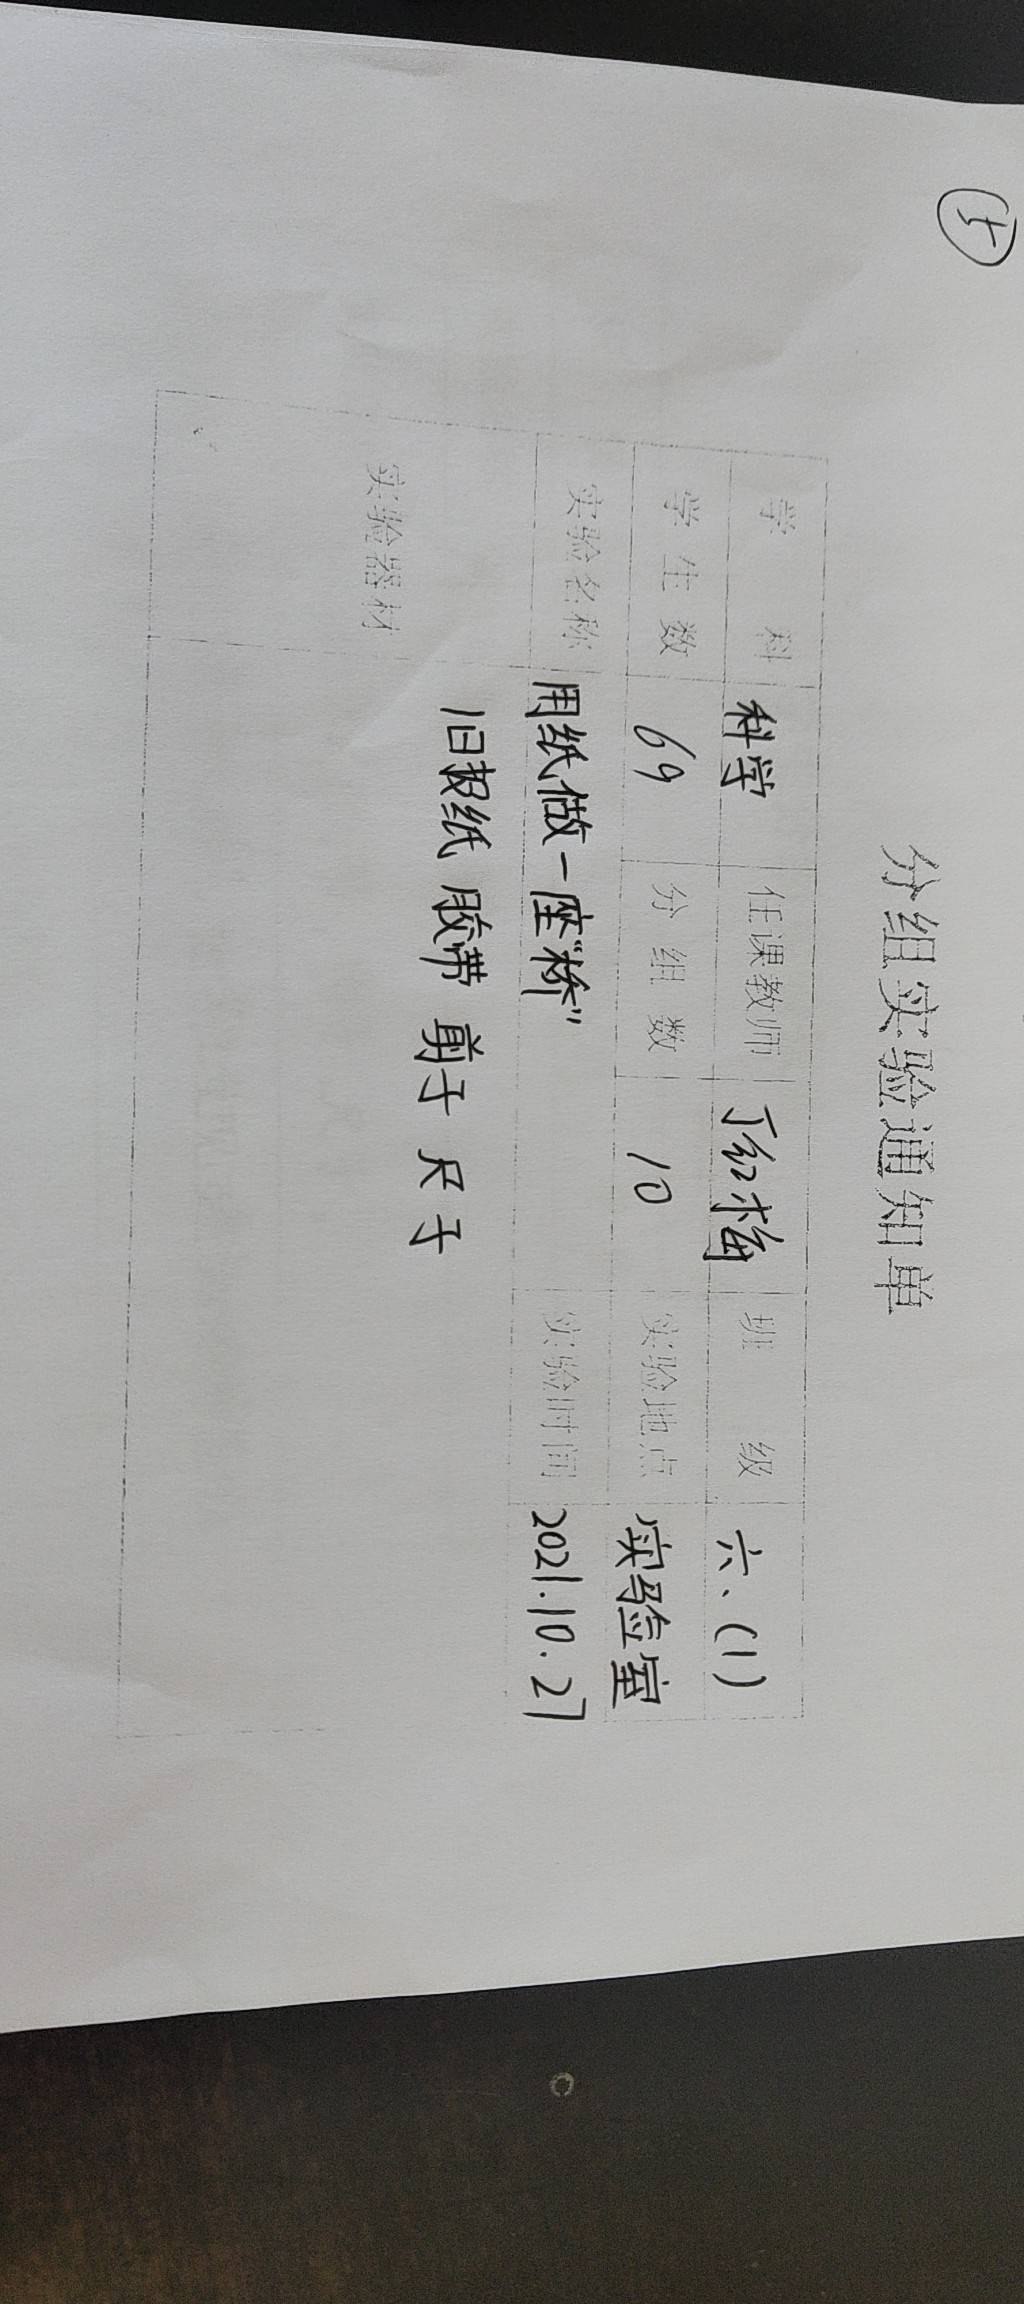 ⑤
分组实验通知单
学 科 科学 任课教师 丁红梅 班 级 六、(1)
学生数 69 分组数 10 实验地点 实验室
实验名称 用纸做一座“桥” 实验时间 2021.10.27
实验器材 旧报纸 胶带 剪子 尺子